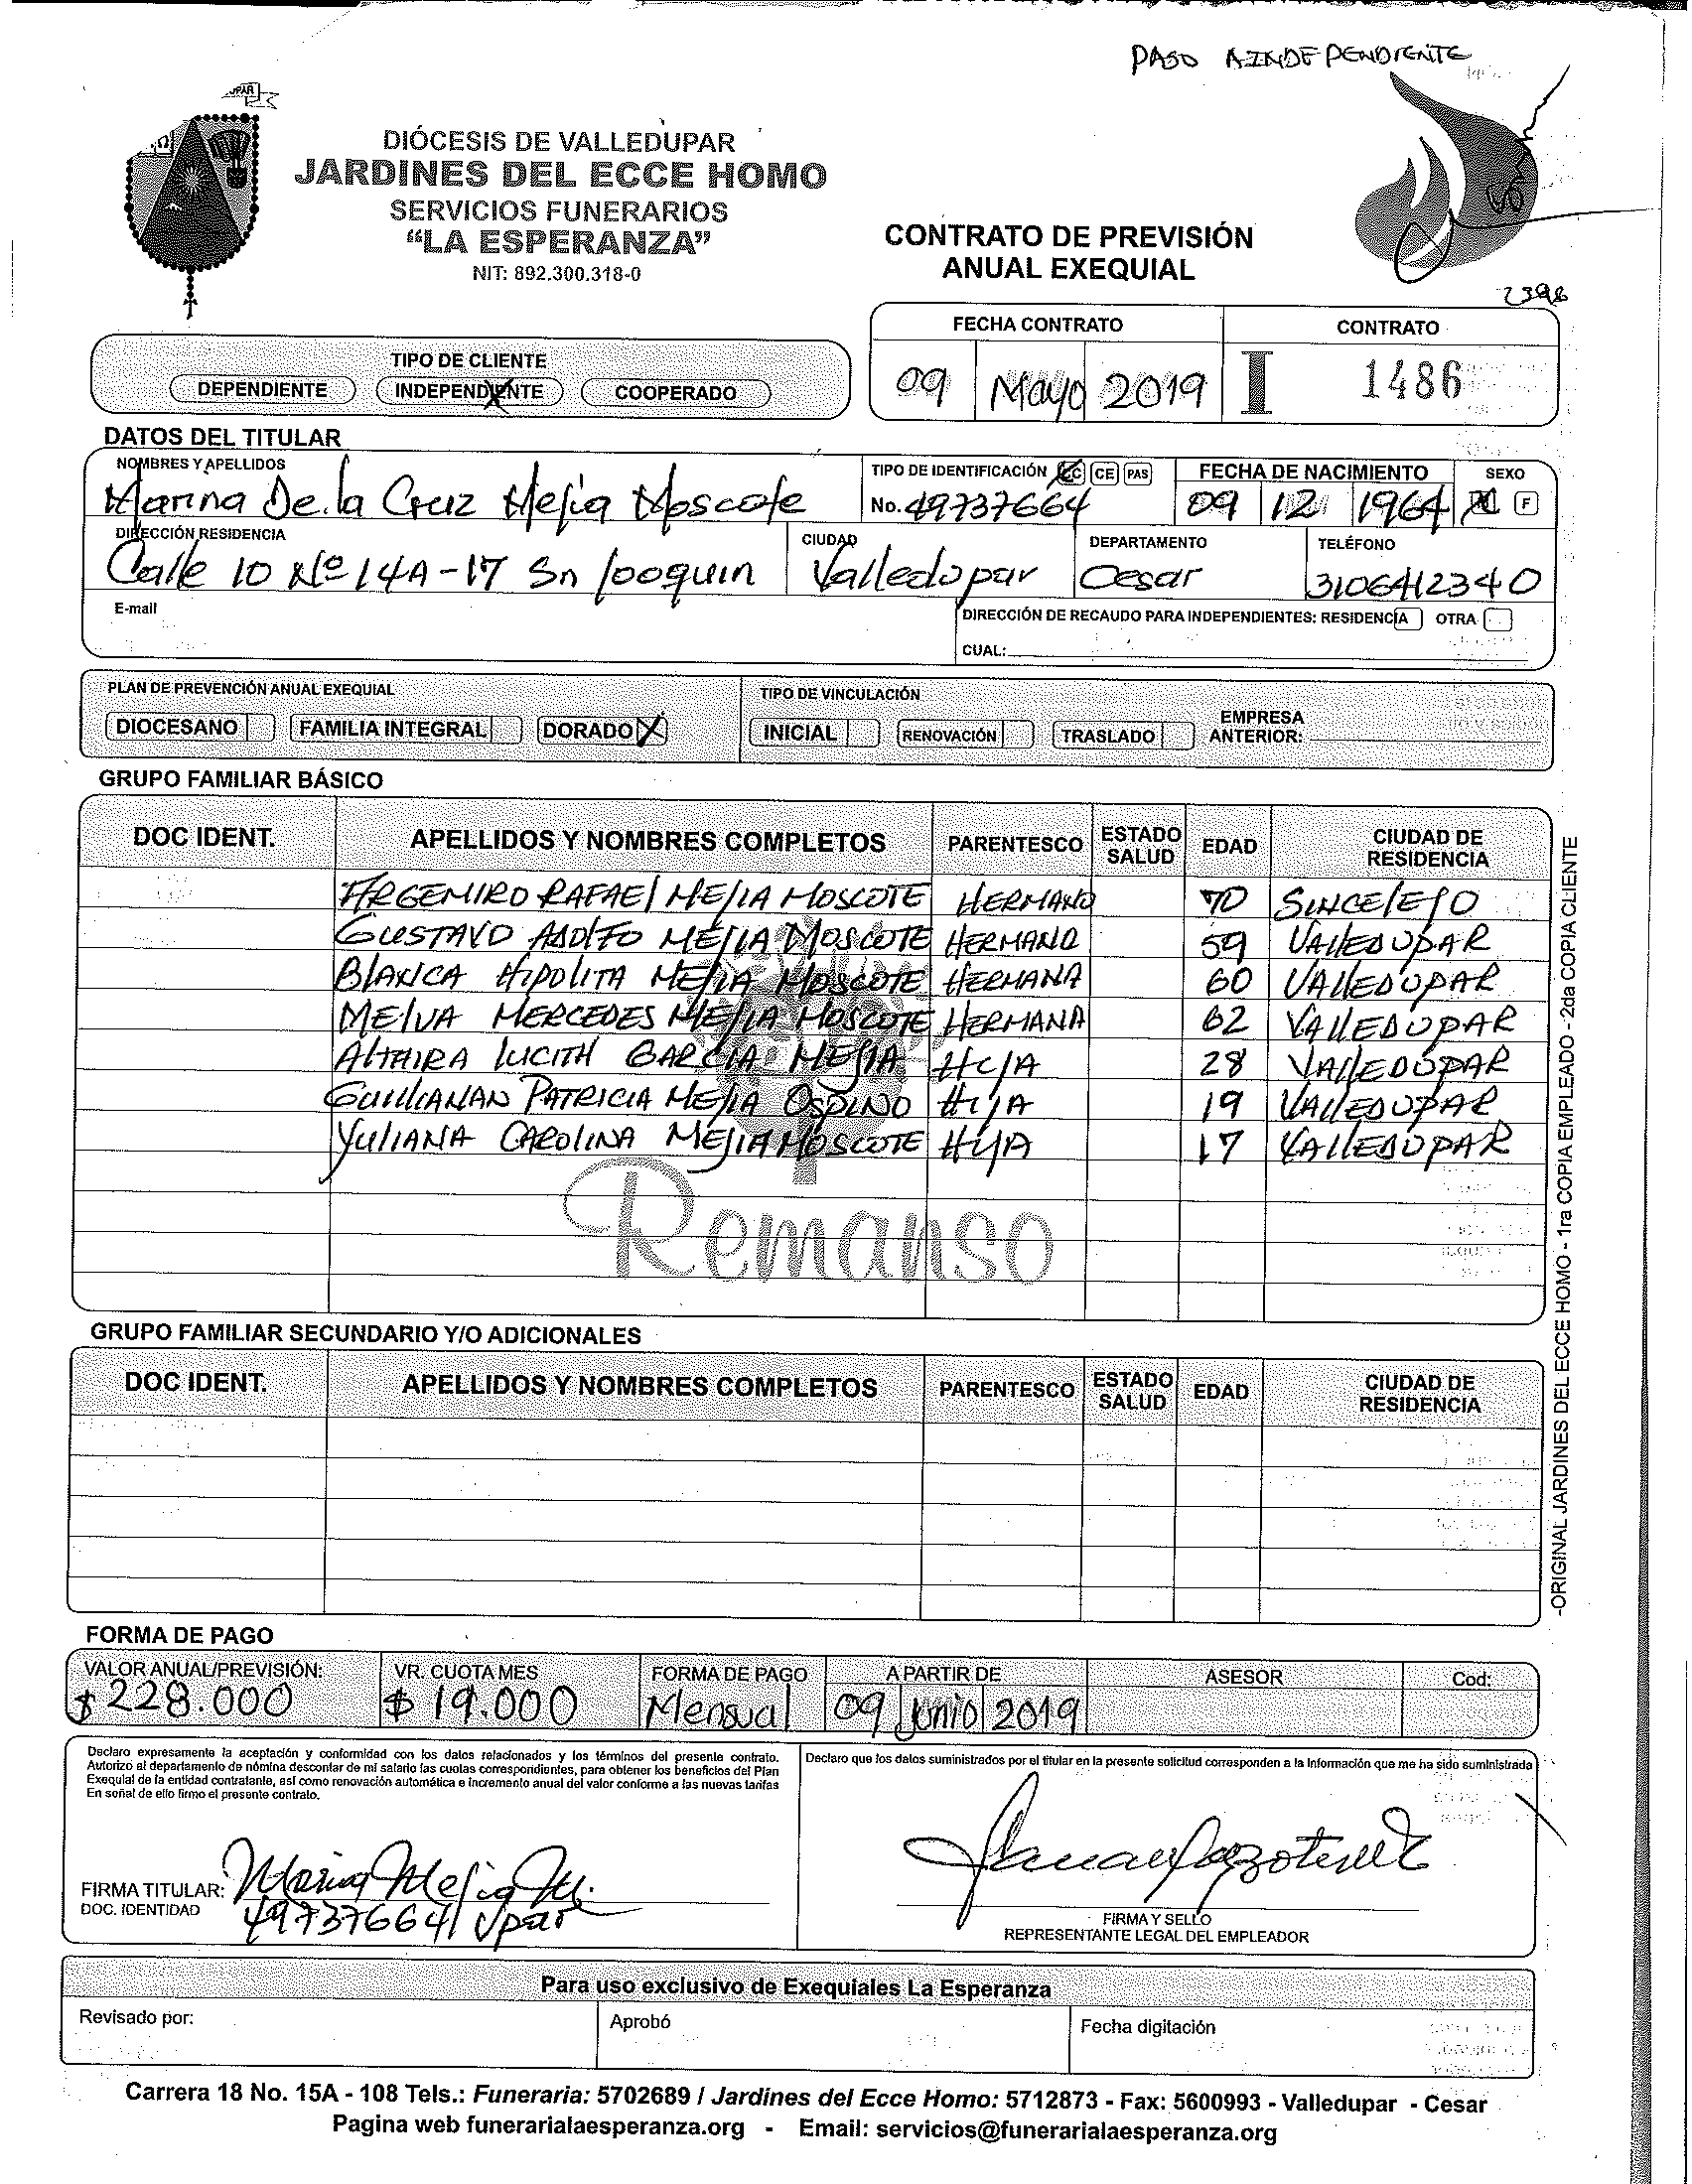 PASO A INDEPENDIENTE
DIÓCESIS DE VALLEDUPAR
JARDINES DEL ECCE HOMO
SERVICIOS FUNERARIOS
“LA ESPERANZA”
NIT: 892.300.318-0
CONTRATO DE PREVISIÓN
ANUAL EXEQUIAL
2398
TIPO DE CLIENTE
DEPENDIENTE INDEPENDIENTE X COOPERADO
FECHA CONTRATO CONTRATO
09 Mayo 2019 I 1486
DATOS DEL TITULAR
NOMBRES Y APELLIDOS TIPO DE IDENTIFICACIÓN CC CE PAS FECHA DE NACIMIENTO SEXO
Marina De la Cruz Mejia Moscote No. 49737664 09 12 1964 M F
DIRECCIÓN RESIDENCIA CIUDAD DEPARTAMENTO TELÉFONO
Calle 10 Nº 14A-17 Sn Jooquin Valledupar Cesar 3106412340
E-mail DIRECCIÓN DE RECAUDO PARA INDEPENDIENTES: RESIDENCIA OTRA
CUAL:
PLAN DE PREVENCIÓN ANUAL EXEQUIAL TIPO DE VINCULACIÓN
DIOCESANO FAMILIA INTEGRAL DORADO X INICIAL RENOVACIÓN TRASLADO EMPRESA ANTERIOR:
GRUPO FAMILIAR BÁSICO
DOC IDENT. APELLIDOS Y NOMBRES COMPLETOS PARENTESCO ESTADO SALUD EDAD CIUDAD DE RESIDENCIA
ARGEMIRO RAFAEL MEJIA MOSCOTE HERMANO 70 SINCELEJO
GUSTAVO ADOLFO MEJIA MOSCOTE HERMANO 59 VALLEDUPAR
BLANCA HIPOLITA MEJIA MOSCOTE HERMANA 60 VALLEDUPAR
MELVA MERCEDES MEJIA MOSCOTE HERMANA 62 VALLEDUPAR
ALTAIRA LUCITH GARCIA MEJIA HIJA 28 VALLEDUPAR
GUILLIANAN PATRICIA MEJIA OSPINO HIJA 19 VALLEDUPAR
YULIANA CAROLINA MEJIA MOSCOTE HIJA 17 VALLEDUPAR
Remanso
GRUPO FAMILIAR SECUNDARIO Y/O ADICIONALES
DOC IDENT. APELLIDOS Y NOMBRES COMPLETOS PARENTESCO ESTADO SALUD EDAD CIUDAD DE RESIDENCIA
-ORIGINAL JARDINES DEL ECCE HOMO - 1ra COPIA EMPLEADO - 2da COPIA CLIENTE
FORMA DE PAGO
VALOR ANUAL/PREVISIÓN: VR. CUOTA MES FORMA DE PAGO A PARTIR DE ASESOR Cod:
$ 228.000 $ 19.000 Mensual 09 Junio 2019
Declaro expresamente la aceptación y conformidad con los datos relacionados y los términos del presente contrato.
Autorizo al departamento de nómina descontar de mi salario las cuotas correspondientes, para obtener los beneficios del Plan
Exequial de la entidad contratante, así como renovación automática e incremento anual del valor conforme a las nuevas tarifas
En señal de ello firmo el presente contrato.
Declaro que los datos suministrados por el titular en la presente solicitud corresponden a la Información que me ha sido suministrada
FIRMA TITULAR: Marina Mejia M.
DOC. IDENTIDAD 49737664 Vpar
FIRMA Y SELLO
REPRESENTANTE LEGAL DEL EMPLEADOR
Para uso exclusivo de Exequiales La Esperanza
Revisado por: Aprobó Fecha digitación
Carrera 18 No. 15A - 108 Tels.: Funeraria: 5702689 / Jardines del Ecce Homo: 5712873 - Fax: 5600993 - Valledupar - Cesar
Pagina web funerarialaesperanza.org - Email: servicios@funerarialaesperanza.org